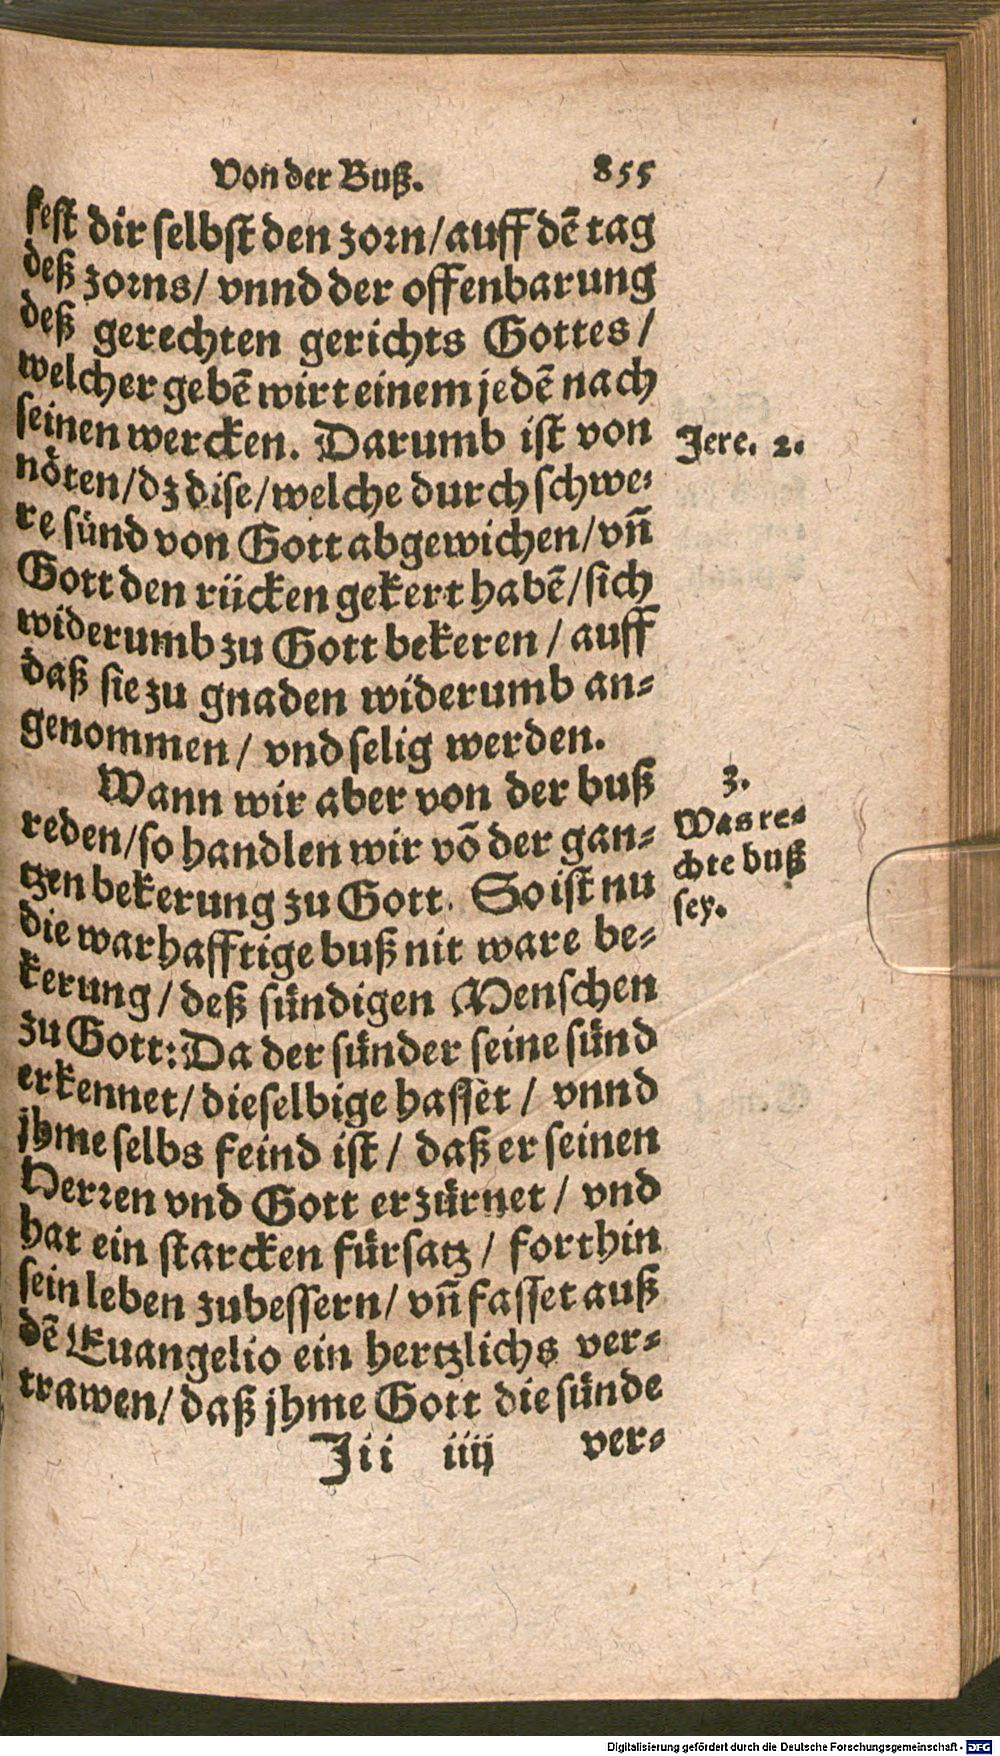 Von der Buß. 855
kest dir selbst den zorn/auff dẽ tag
deß zorns/ vnnd der offenbarung
deß gerechten gerichts Gottes/
welcher gebẽ wirt einem jedẽ nach
seinen wercken. Darumb ist von
Jere. 2.
nöten/dz dise/welche durch schwe-
re sünd von Gott abgewichen/vñ
Gott den rücken gekert habẽ/sich
widerumb zu Gott bekeren/auff
daß sie zu gnaden widerumb an-
genommen/ vnd selig werden.
Wann wir aber von der buß
3.
Was re-
chte buß
sey.
reden/so handlen wir võ der gan-
tzen bekerung zu Gott. So ist nu
die warhafftige buß nit ware be-
kerung/deß sündigen Menschen
zu Gott: Da der sünder seine sünd
erkennet/dieselbige hasset/ vnnd
jhme selbs feind ist/ daß er seinen
Herren vnd Gott erzürnet/ vnd
hat ein starcken fürsatz/ forthin
sein leben zubessern/ vñ fasset auß
dẽ Euangelio ein hertzlichs ver-
trawen/daß jhme Gott die sünde
Jii iiij ver-
Digitalisierung gefördert durch die Deutsche Forschungsgemeinschaft - DFG